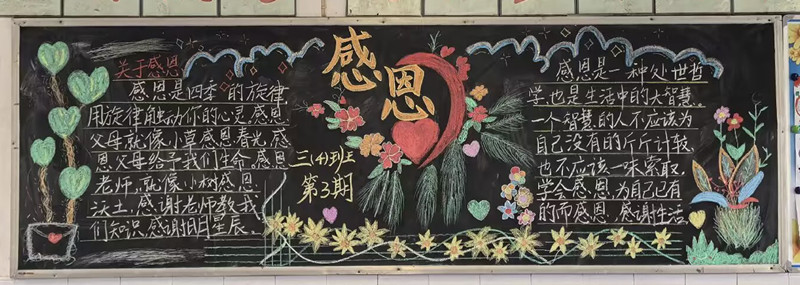 关于感恩
感恩是四季的旋律,
用旋律触动你的心灵,感恩
父母就像小草感恩春光,感
恩父母给予我们生命,感恩
老师,就像小树感恩
沃土,感谢老师教我
们知识,感谢明星辰。
感恩
三(4)班
第3期
感恩是一种处世哲
学,也是生活中的大智慧。
一个智慧的人不应该为
自己没有的斤斤计较,
也不应该一味索取,
学会感恩,为自己已有
的而感恩,感谢生活